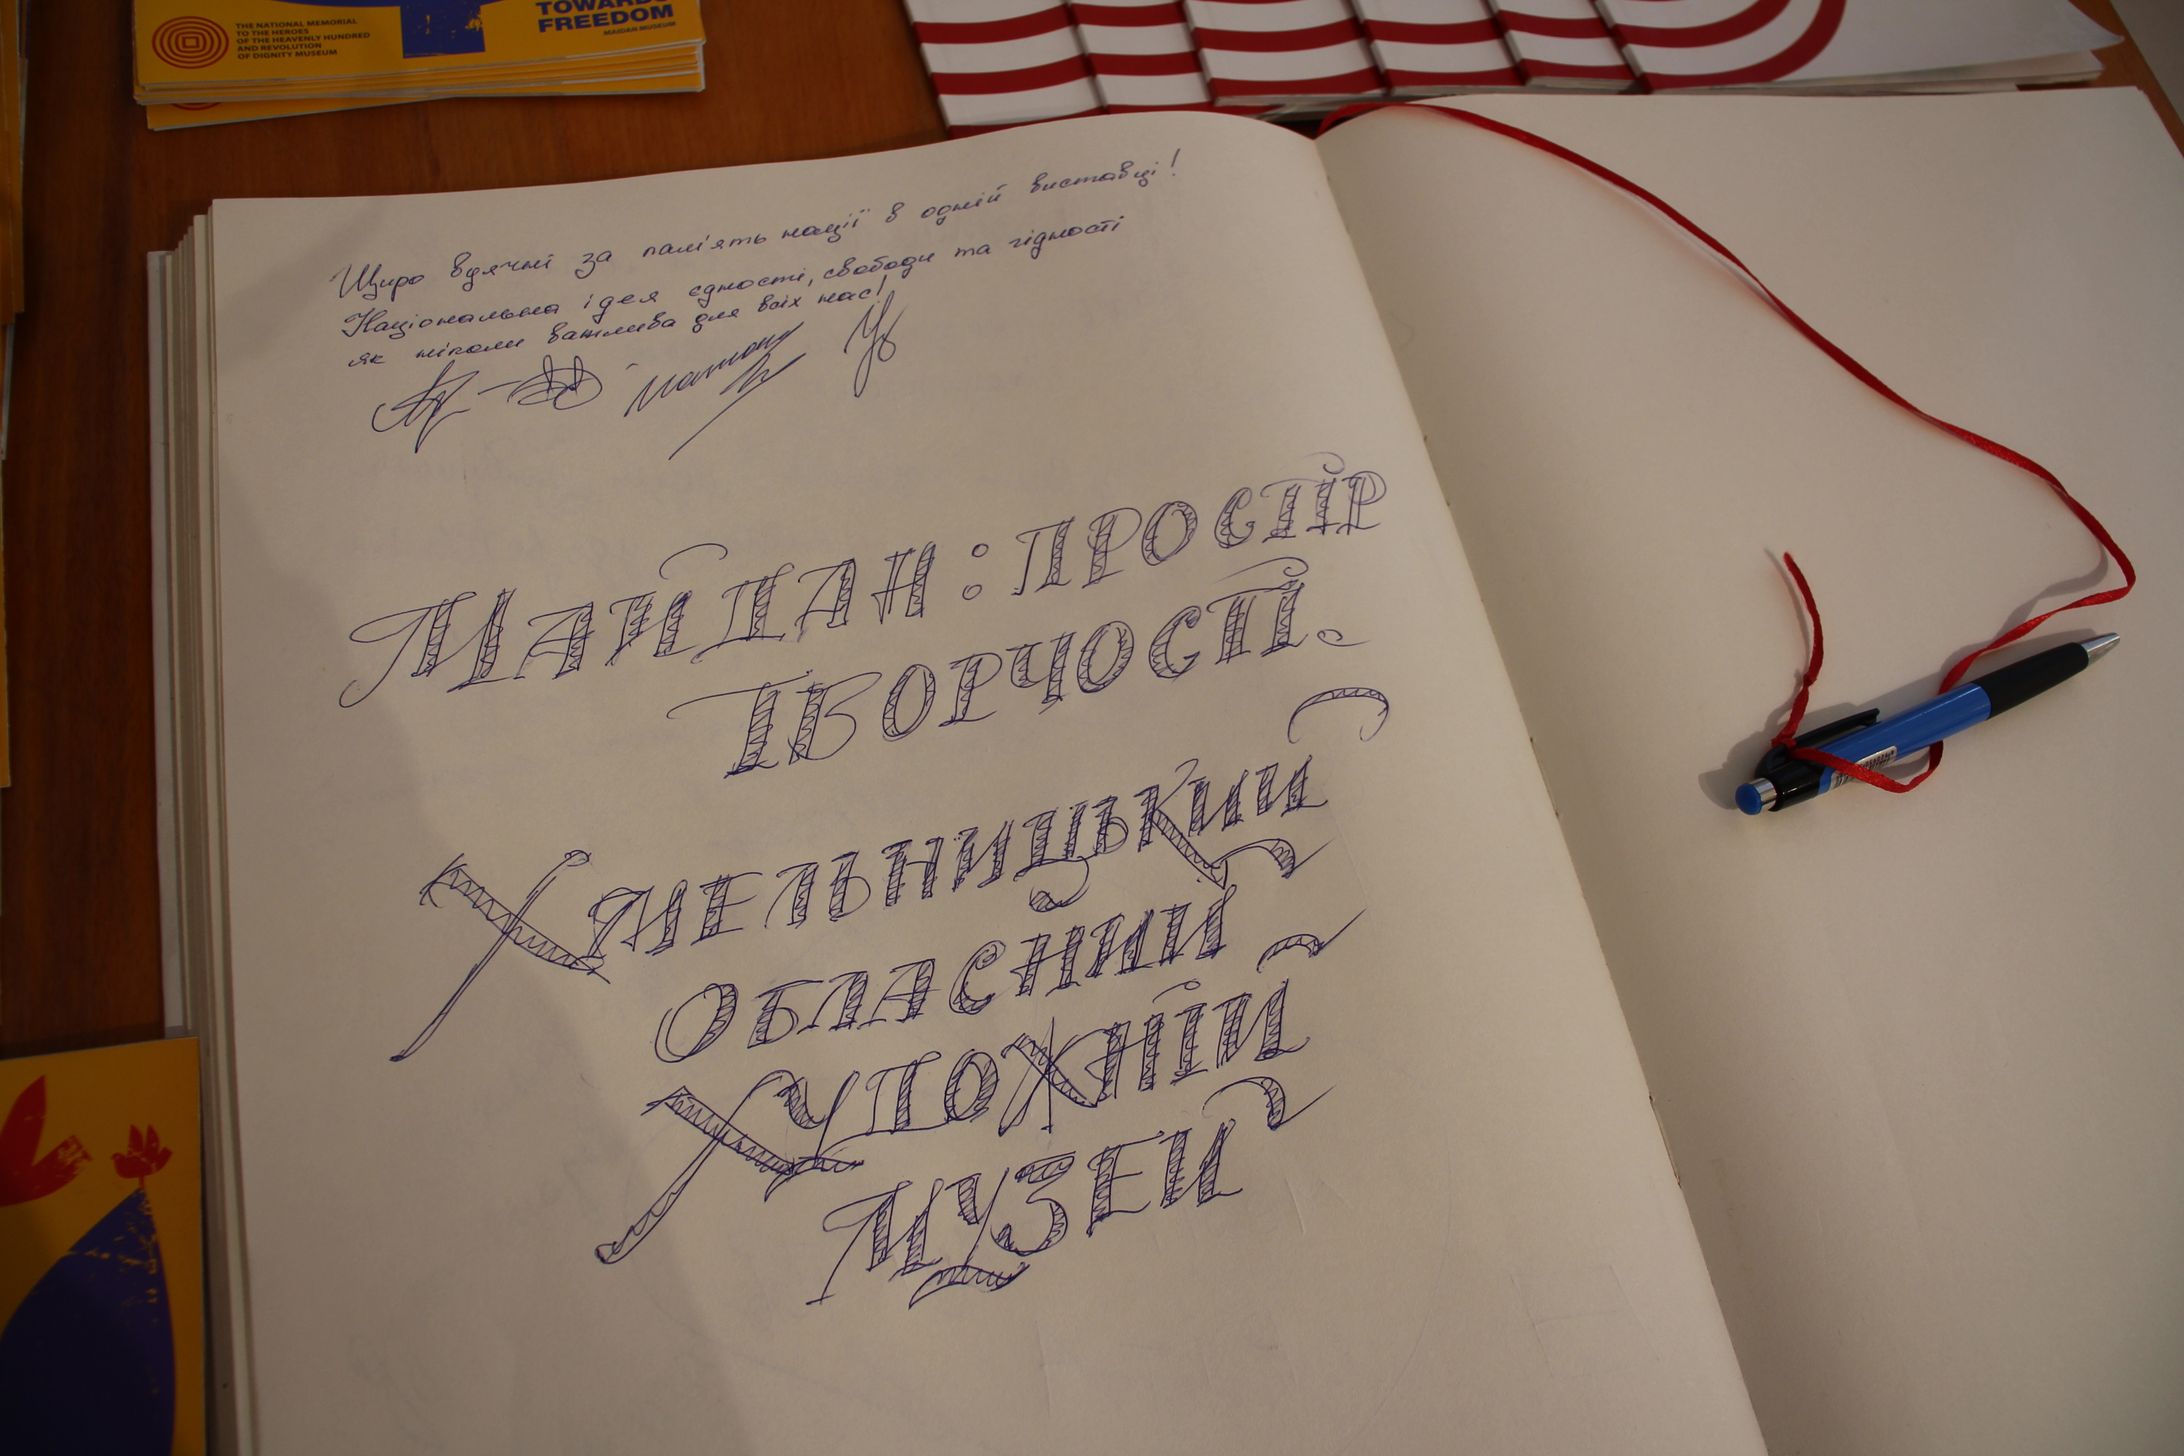 TOWARDS
FREEDOM
MAIDAN MUSEUM
THE NATIONAL MEMORIAL
TO THE HEROES
OF THE HEAVENLY HUNDRED
AND REVOLUTION
OF DIGNITY MUSEUM
Щиро вдячні за пам'ять нації в одній виставці!
Національна ідея єдності, свободи та гідності
як ніколи важлива для всіх нас!
МАЙДАН: ПРОСТІР
ТВОРЧОСТІ.
ХМЕЛЬНИЦЬКИЙ
ОБЛАСНИЙ
ХУДОЖНІЙ
МУЗЕЙ